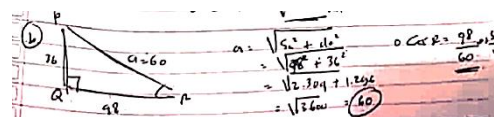 b
P
36
a=60
Q
98
R
a = √50² + 40²
= √98² + 36²
= √2.304 + 1.296
= √3600 = 60
Cos R = 98
60